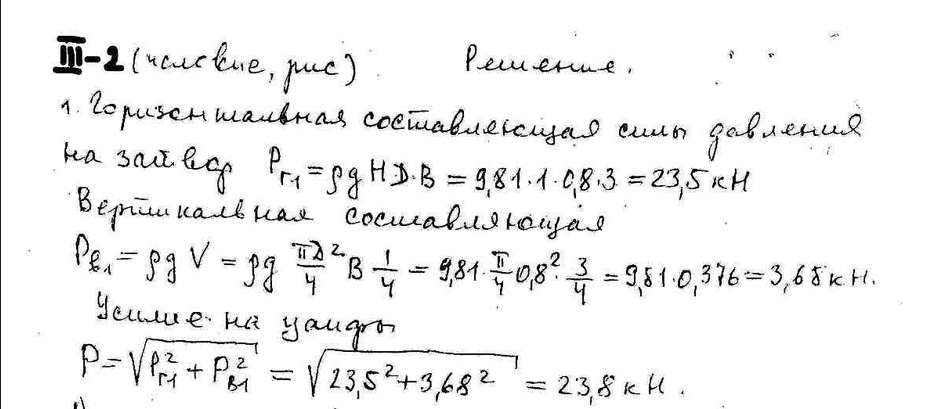 III-2 (условие, рис) Решение.
1. Горизонтальная составляющая силы давления
на затвор Pг1 = ρgHD·B = 9,81·1·0,8·3 = 23,5 кН
Вертикальная составляющая
Pв1 = ρgV = ρg πD²/4 B 1/4 = 9,81·π/4 0,8²·3/4 = 9,81·0,376 = 3,68 кН.
Усилие на цапфы
P = √(Pг1² + Pв1²) = √(23,5² + 3,68²) = 23,8 кН.